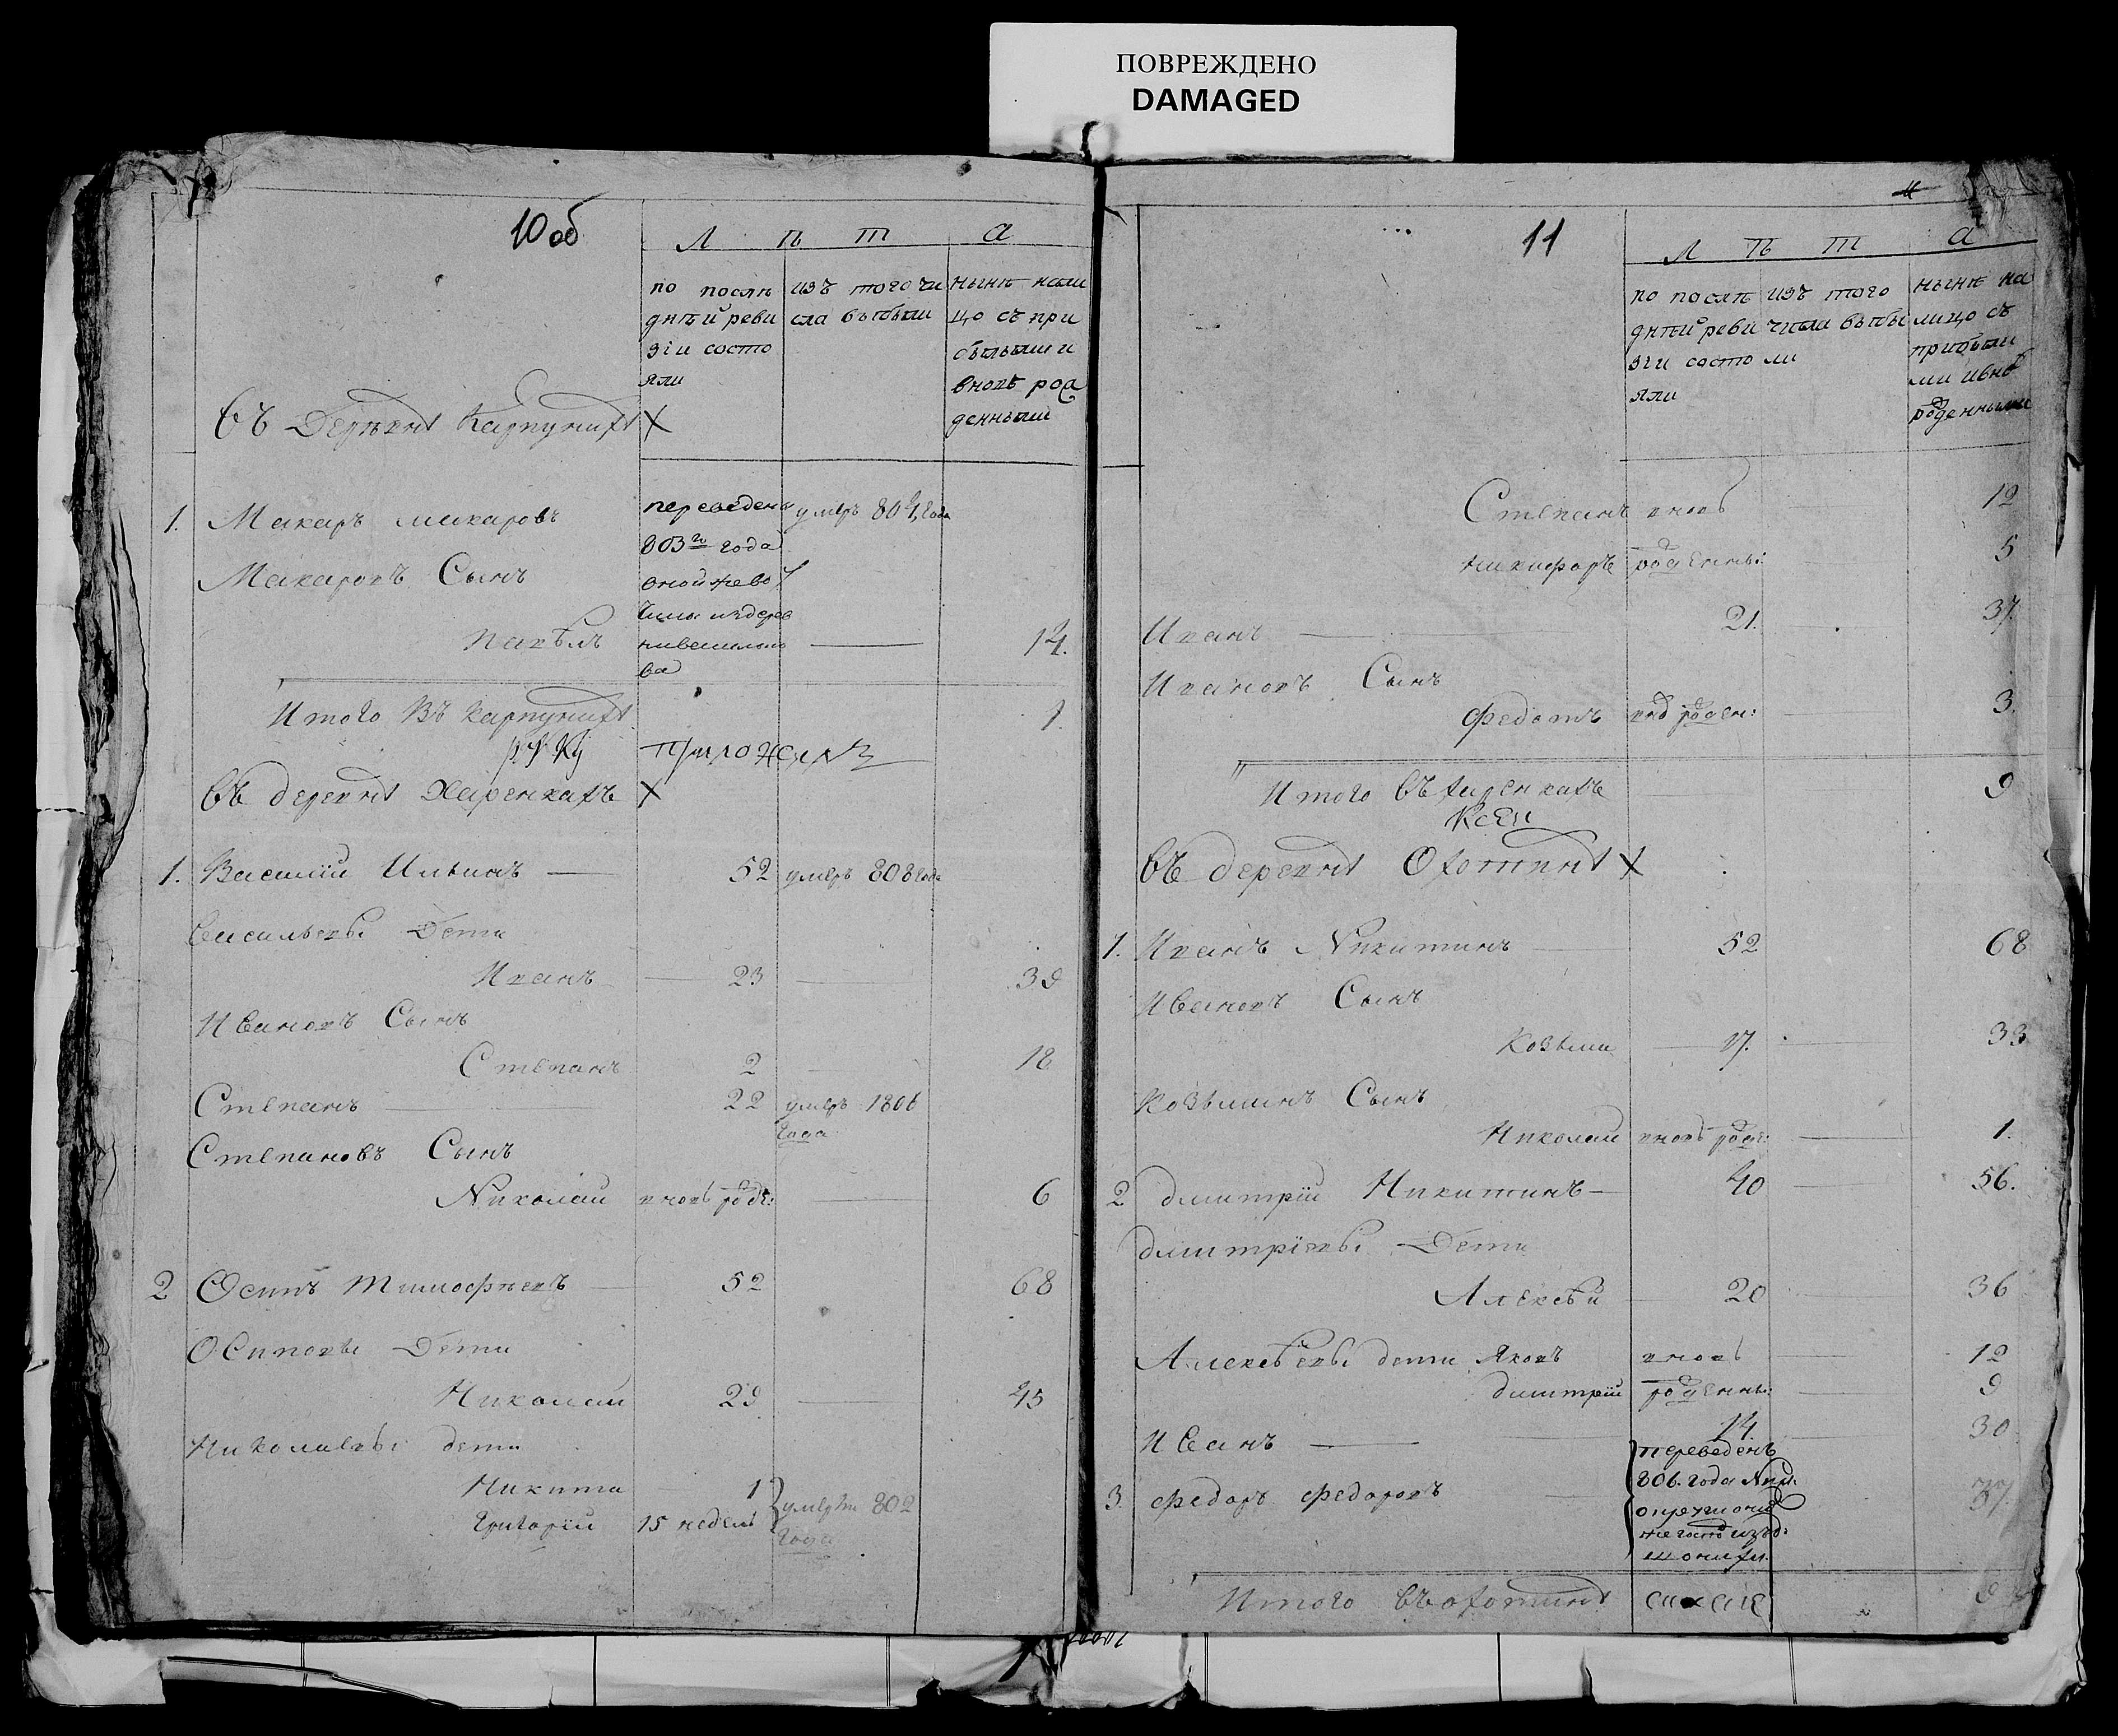 ПОВРЕЖДЕНО
DAMAGED
10 об
Л ѣ т а
по послѣ
дней реви
зіи состо
яли
изъ того чи
сла выбыли
нынѣ нали
цо съ при
былыми и
вновь рож
денными
Въ деревнѣ Карпунихѣ X
1. Макаръ Макаровъ переведенъ умръ 804 года
803го года
Макаровъ Сынъ
Павѣлъ 14.
Итого Въ Карпунихѣ 1.
Въ деревнѣ Харенкахъ X
1. Василій Ильинъ 52 умеръ 808 года
Васильевы Дети
Иванъ 23 39
Ивановъ Сынъ
Степанъ 2 18
Степанъ 22 умеръ 1806
года
Степановъ Сынъ
Николай вновь рожде: 6
2 Осипъ Тимофѣевъ 52 68
Осиповы Дети
Николай 29 45
Николаевы дети
Никита 1
Григорій 15 недель умерли 802
года
11
Л ѣ т а
по послѣ
дней реви
зіи состо
яли
изъ того
числа выбы
ли
нынѣ на
лицо съ
прибылы
ми и внов
рожденными
Степанъ вновь 12
Никифоръ рожденны: 5
Иванъ 21. 37.
Ивановъ Сынъ
Федотъ вно рожден: 3.
Итого въ харенкахъ 9
Въ деревнѣ Охотинѣ X
1. Иванъ Никитинъ 52 68
Ивановъ Сынъ
Козьма 17. 33
Козьминъ Сынъ
Николай вновь рожде: 1.
2 Дмитрій Никитинъ 40 56.
Дмитріевы Дети
Алексѣй 20 36
Алексѣевы дети Яковъ вновь 12
Дмитрій рожденны: 9
Иванъ 14. 30
переведенъ
806. года
3 Федоръ Федоровъ 37.
Итого въ охотинѣ 9